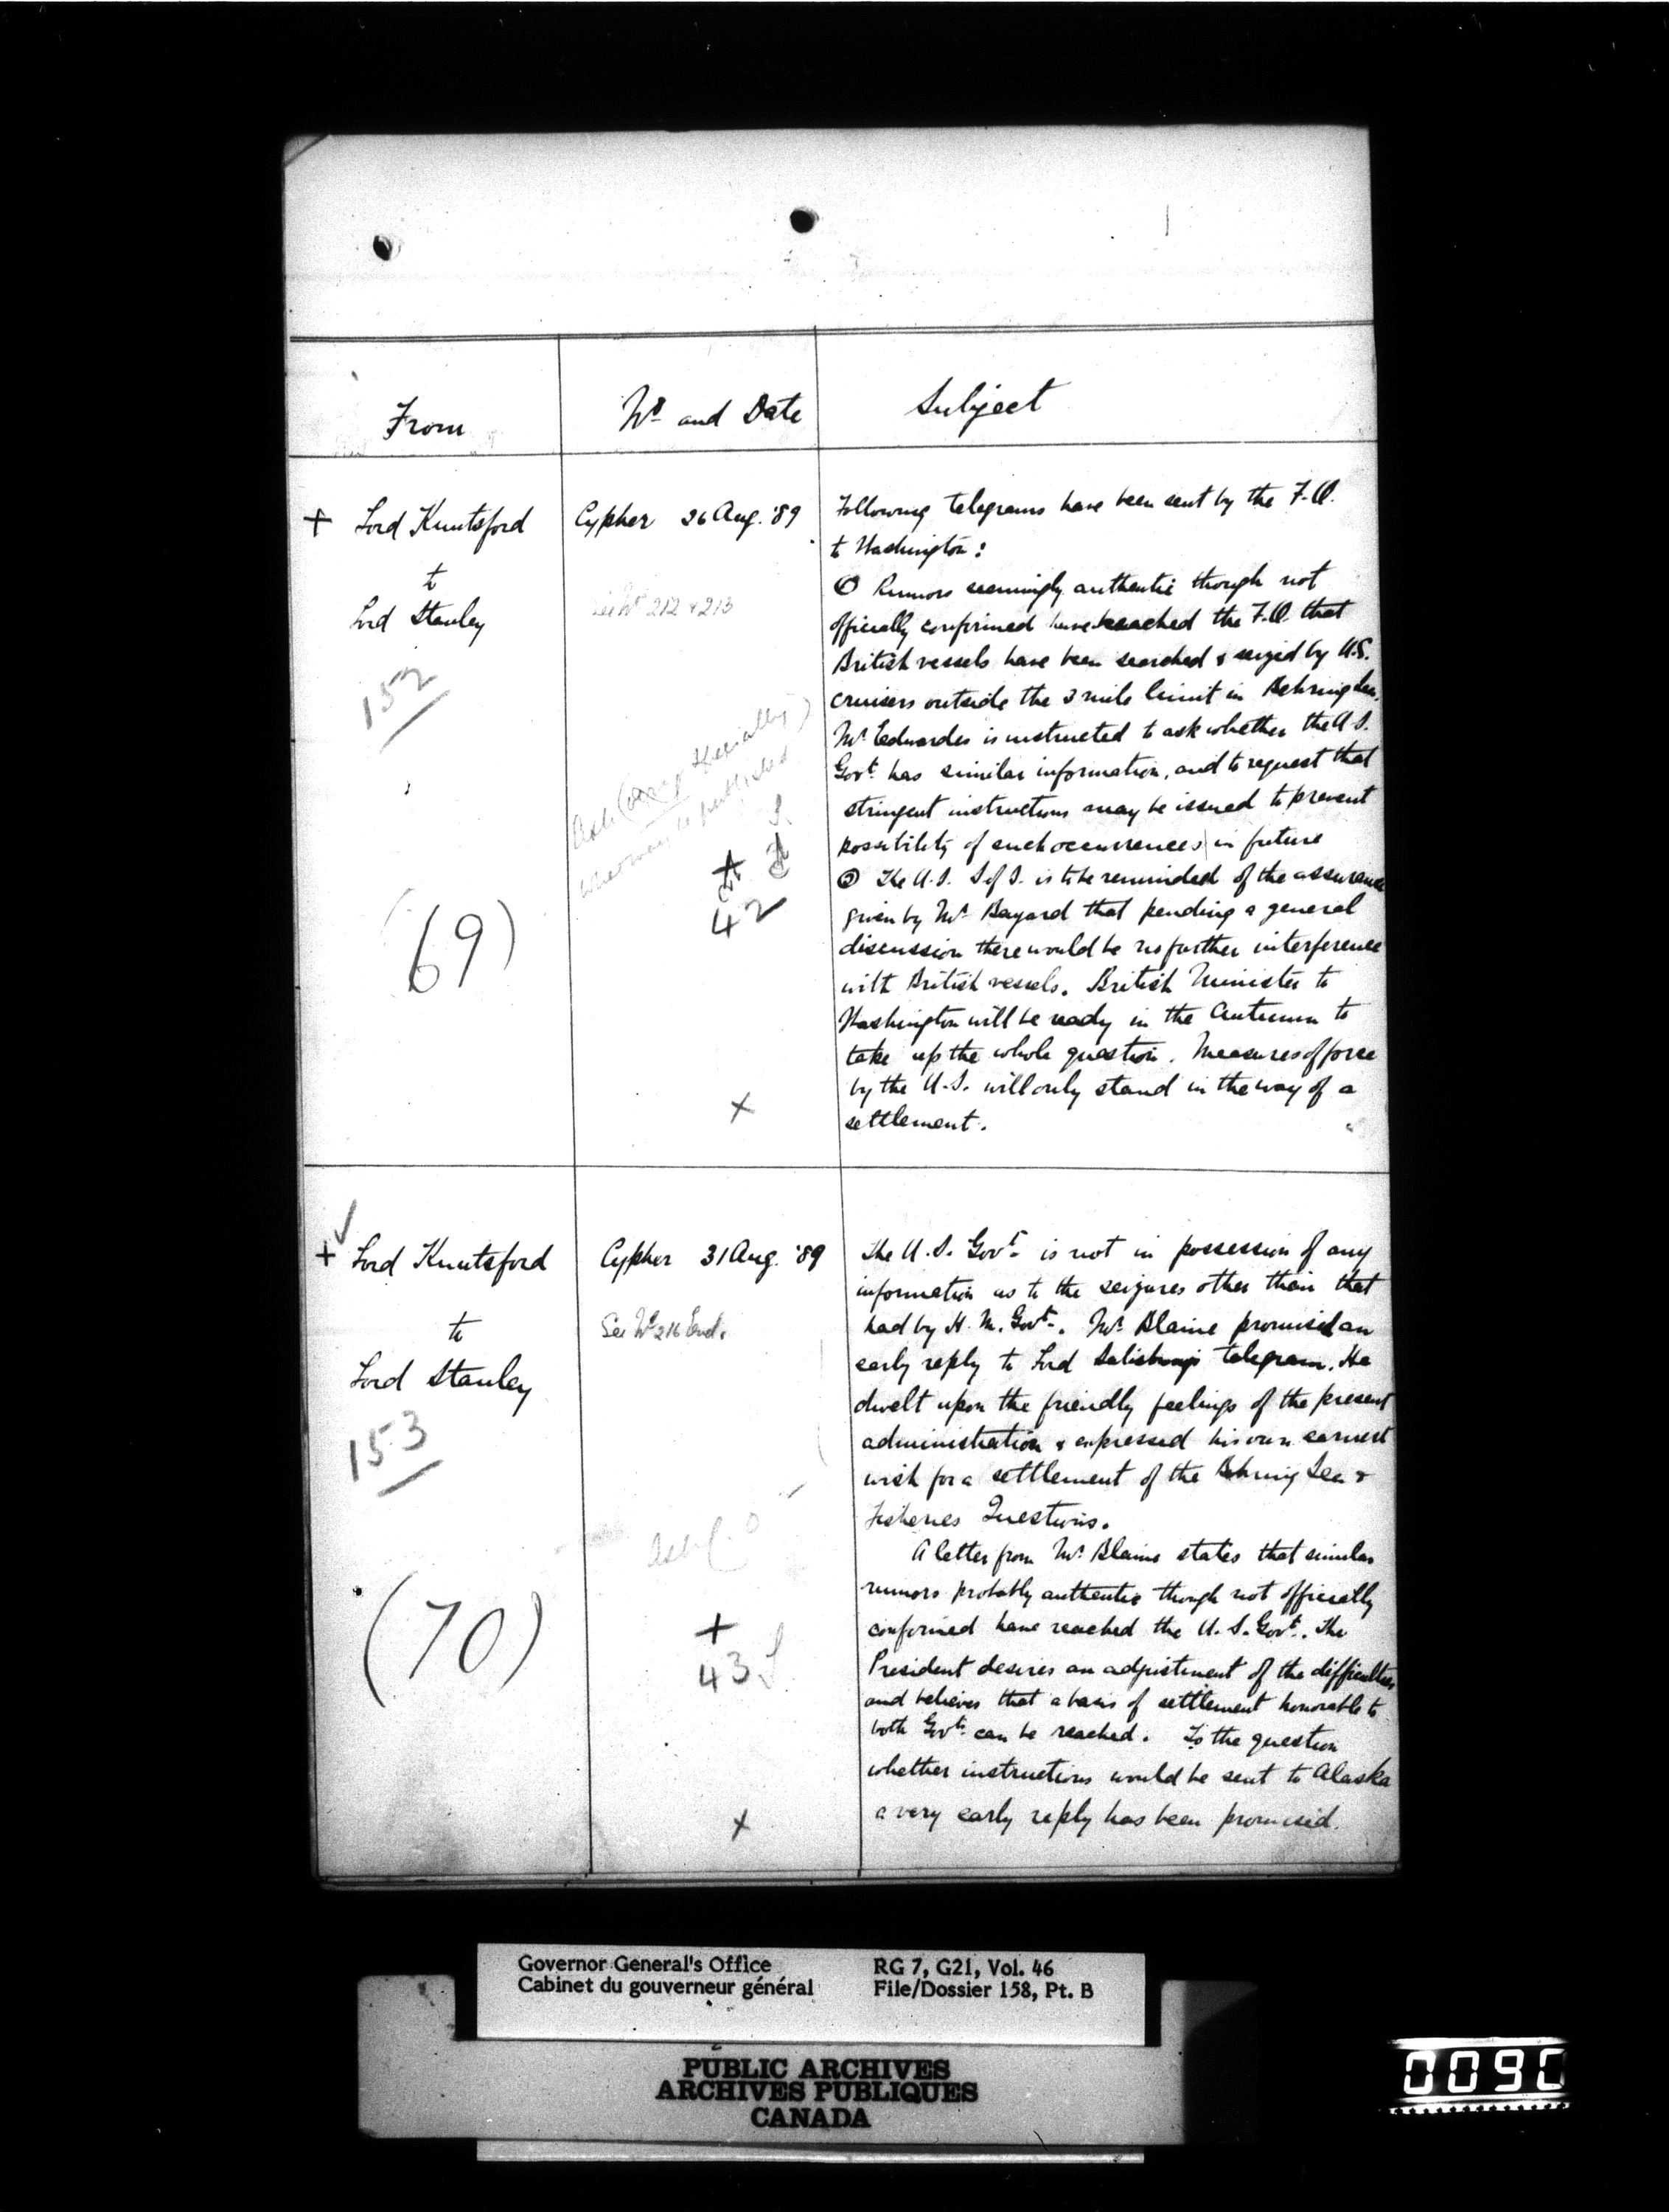 From
No and Date
Subject
+ Lord Knutsford
to
Lord Stanley
152
(69)
Cypher 26 Aug. '89
See No 212 & 213
Ask (
specially)
published
42
x
Following telegrams have been sent by the F.O.
to Washington:
① Rumors seemingly authentic though not
officially confirmed have reached the F.O. that
British vessels have been searched & seized by U.S.
cruisers outside the 3 mile limit in Behring Sea.
Mr Edwardes is instructed to ask whether the U.S.
Govt. has similar information, and to request that
stringent instructions may be issued to prevent
possibility of such occurrences in future
② The U.S. S of S. is to be reminded of the assurance
given by Mr Bayard that pending a general
discussion there would be no further interference
with British vessels. British Minister to
Washington will be ready in the Autumn to
take up the whole question. Measures of force
by the U.S. will only stand in the way of a
settlement.
+ Lord Knutsford
to
Lord Stanley
153
(70)
Cypher 31 Aug. '89
See No 216 End.
Ask C.O
+
43
x
The U.S. Govt. is not in possession of any
information as to the seizures other than that
had by H.M. Govt. Mr Blaine promised an
early reply to Lord Salisbury's telegram. He
dwelt upon the friendly feelings of the present
administration & expressed his own earnest
wish for a settlement of the Behring Sea &
Fisheries Questions.
A letter from Mr Blaine states that similar
rumors probably authentic though not officially
confirmed have reached the U.S. Govt. The
President desires an adjustment of the difficulties
and believes that a basis of settlement honorable to
both Govts. can be reached. To the question
whether instructions would be sent to Alaska
a very early reply has been promised.
Governor General's Office
Cabinet du gouverneur général
RG 7, G21, Vol. 46
File/Dossier 158, Pt. B
PUBLIC ARCHIVES
ARCHIVES PUBLIQUES
CANADA
0090